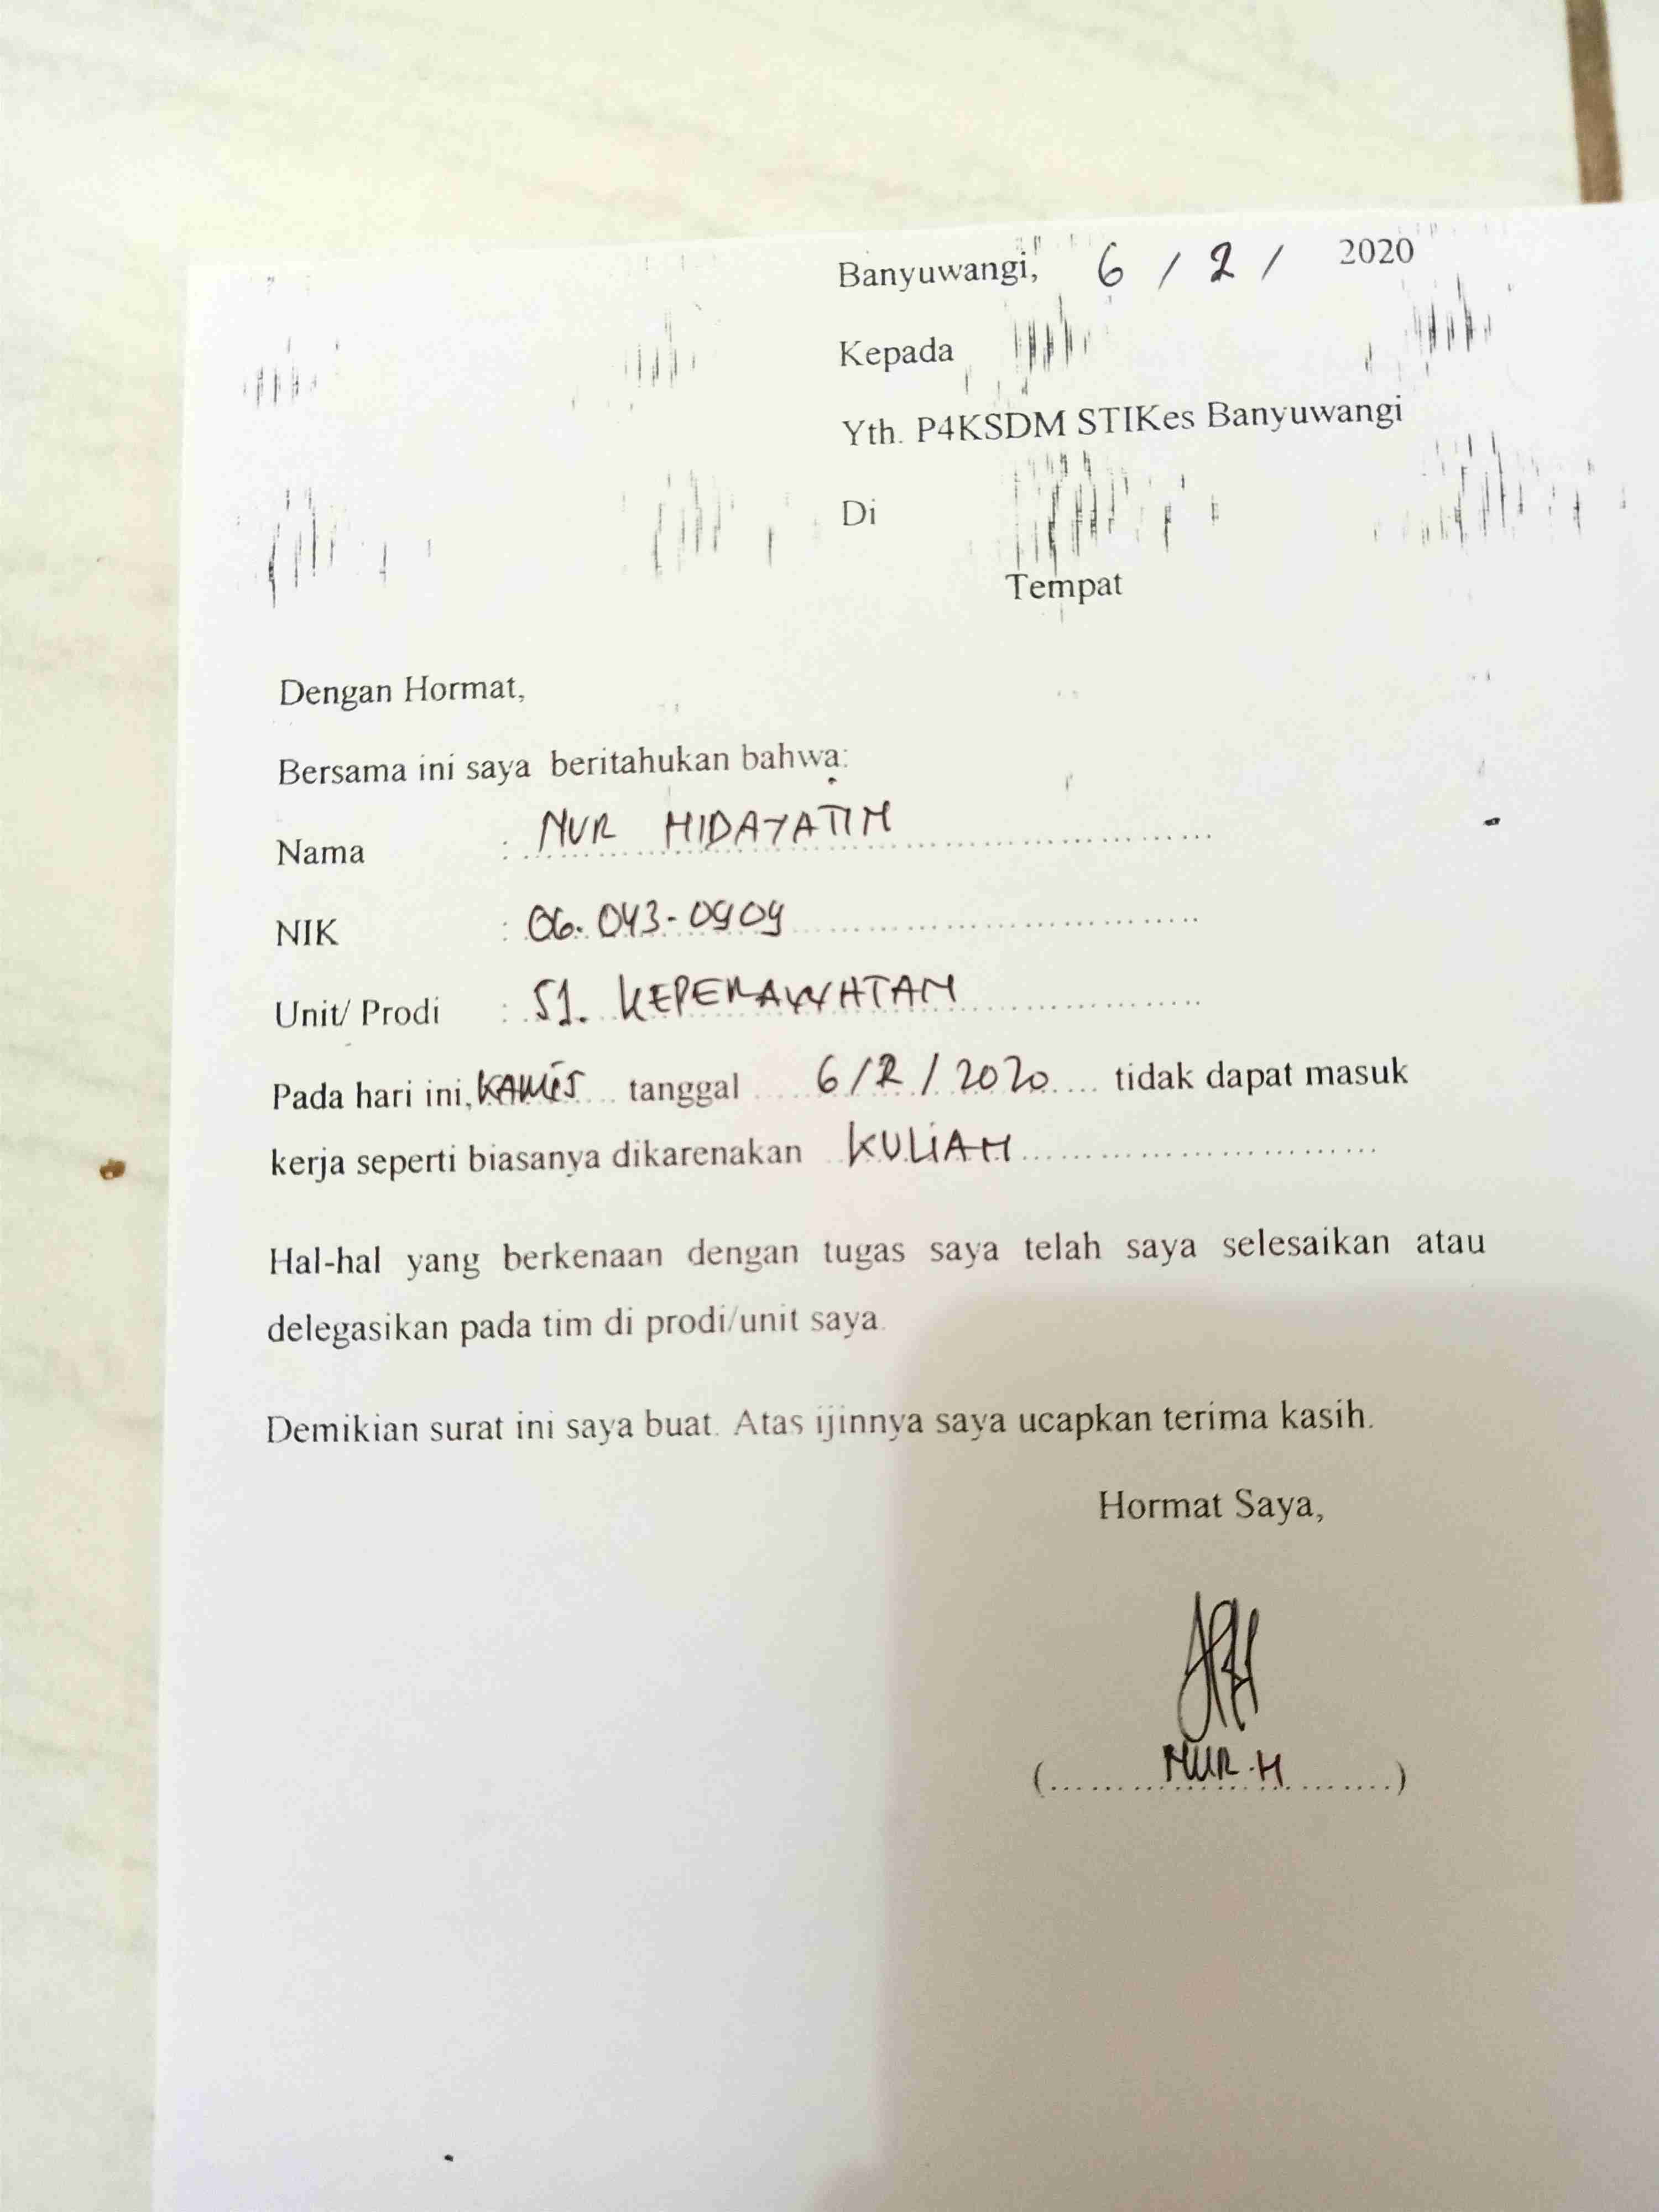 Banyuwangi, 6 / 2 / 2020
Kepada
Yth. P4KSDM STIKes Banyuwangi
Di
Tempat
Dengan Hormat,
Bersama ini saya beritahukan bahwa:
Nama : NUR HIDAYATIN
NIK : 06.043-0909
Unit/ Prodi : S1. KEPERAWATAN
Pada hari ini, KAMIS tanggal 6/2/2020 tidak dapat masuk
kerja seperti biasanya dikarenakan KULIAH
Hal-hal yang berkenaan dengan tugas saya telah saya selesaikan atau
delegasikan pada tim di prodi/unit saya.
Demikian surat ini saya buat. Atas ijinnya saya ucapkan terima kasih.
Hormat Saya,
(NUR.H)